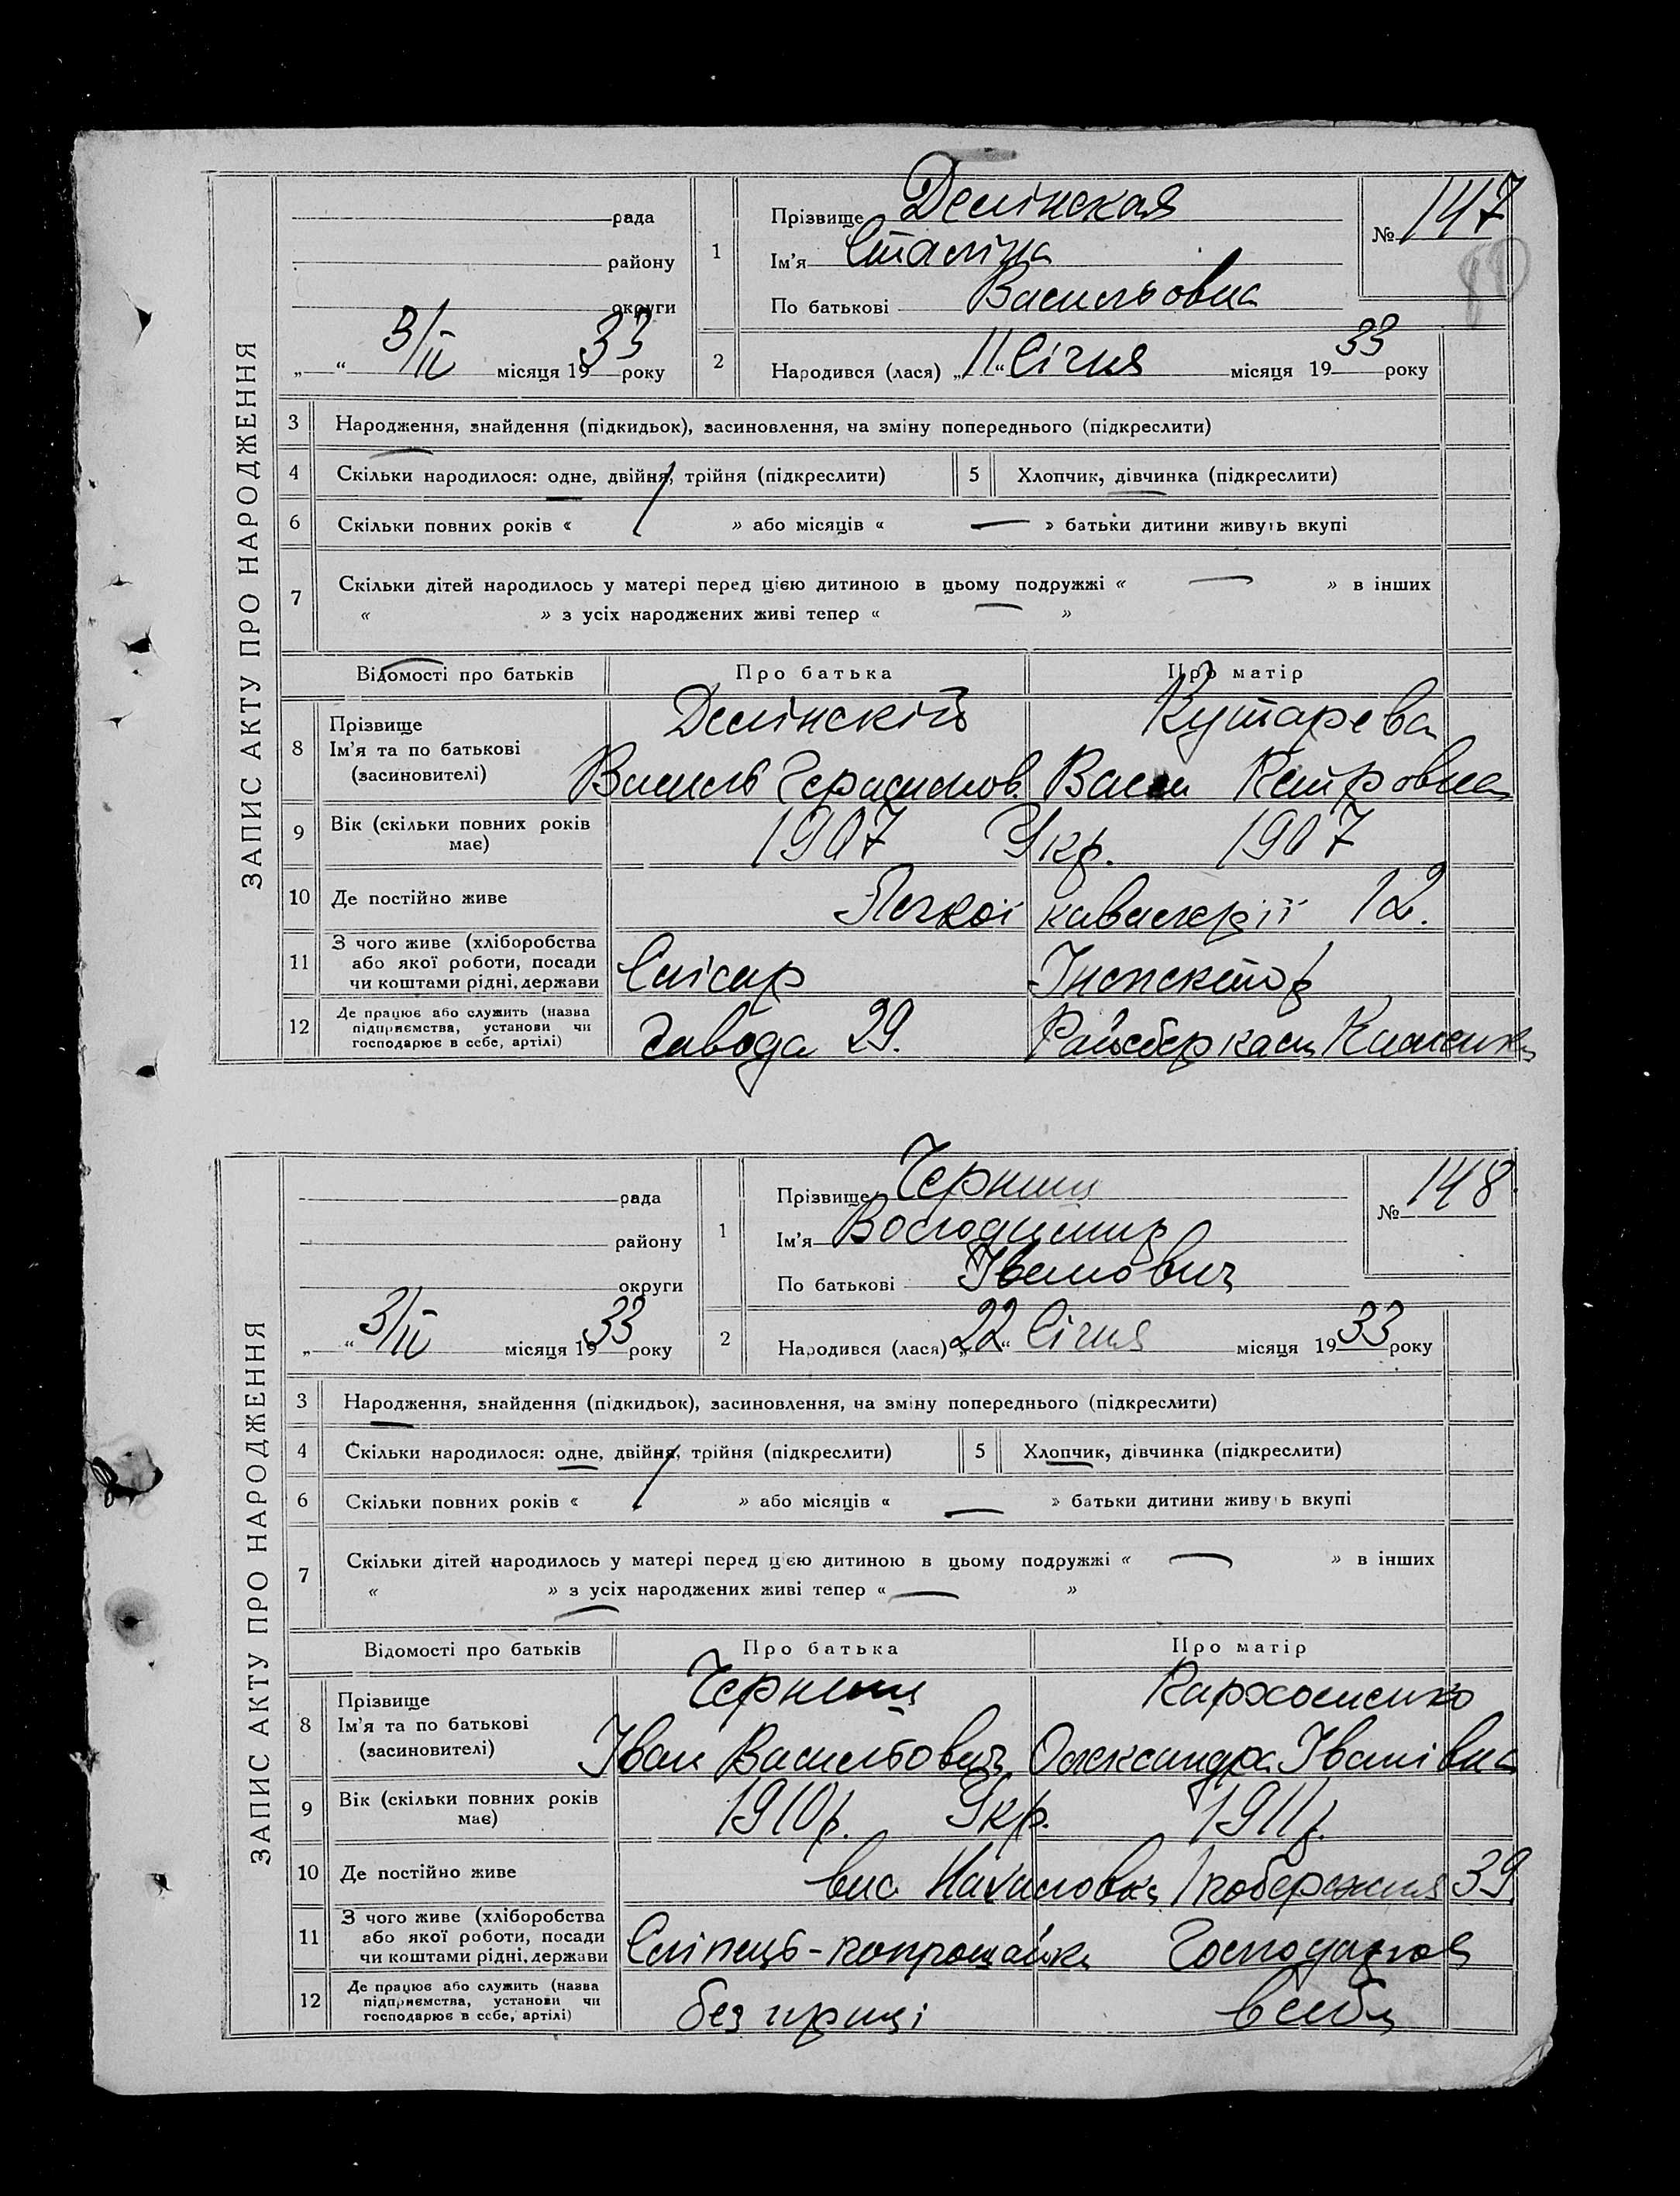 ЗАПИС АКТУ ПРО НАРОДЖЕННЯ
рада
району
округи
3/II місяця 1933 року
1 Прізвище Делінская
Ім'я Сталіна
По батькові Васильовна
№ 147
2 Народився (лася) „11“ Січня місяця 1933 року
3 Народження, знайдення (підкидьок), засиновлення, на зміну попереднього (підкреслити)
4 Скільки народилося: одне, двійня, трійня (підкреслити) 5 Хлопчик, дівчинка (підкреслити)
6 Скільки повних років « » або місяців « — » батьки дитини живуть вкупі
7 Скільки дітей народилось у матері перед цією дитиною в цьому подружжі « — » в інших
« » з усіх народжених живі тепер « — »
Відомості про батьків Про батька Про матір
8 Прізвище Делінскій Кутарева
Ім'я та по батькові
(засновителі) Василь Герасимов. Петровна
9 Вік (скільки повних років має) 1907 Укр. 1907
10 Де постійно живе Легкої кавалерії 12.
11 З чого живе (хліборобства або якої роботи, посади чи коштами рідні, держави Слісар Інспектор
12 Де працює або служить (назва підприємства, установи чи господарює в себе, артілі) Завода 29. Райсберкаси
ЗАПИС АКТУ ПРО НАРОДЖЕННЯ
рада
району
округи
3/II місяця 1933 року
1 Прізвище Черниш
Ім'я Володимир
По батькові Іванович
№ 148
2 Народився (лася) „22“ Січня місяця 1933 року
3 Народження, знайдення (підкидьок), засиновлення, на зміну попереднього (підкреслити)
4 Скільки народилося: одне, двійня, трійня (підкреслити) 5 Хлопчик, дівчинка (підкреслити)
6 Скільки повних років « » або місяців « — » батьки дитини живуть вкупі
7 Скільки дітей народилось у матері перед цією дитиною в цьому подружжі « — » в інших
« » з усіх народжених живі тепер « — »
Відомості про батьків Про батька Про матір
8 Прізвище Черниш Пархоменко
Ім'я та по батькові
(засиновителі) Іван Васильович Олександра Іванівна
9 Вік (скільки повних років має) 1910р. Укр. 1911р.
10 Де постійно живе побережня 39.
11 З чого живе (хліборобства або якої роботи, посади чи коштами рідні, держави Сліпець-попрошайка Господарює
12 Де працює або служить (назва підприємства, установи чи господарює в себе, артілі) без праці в себе